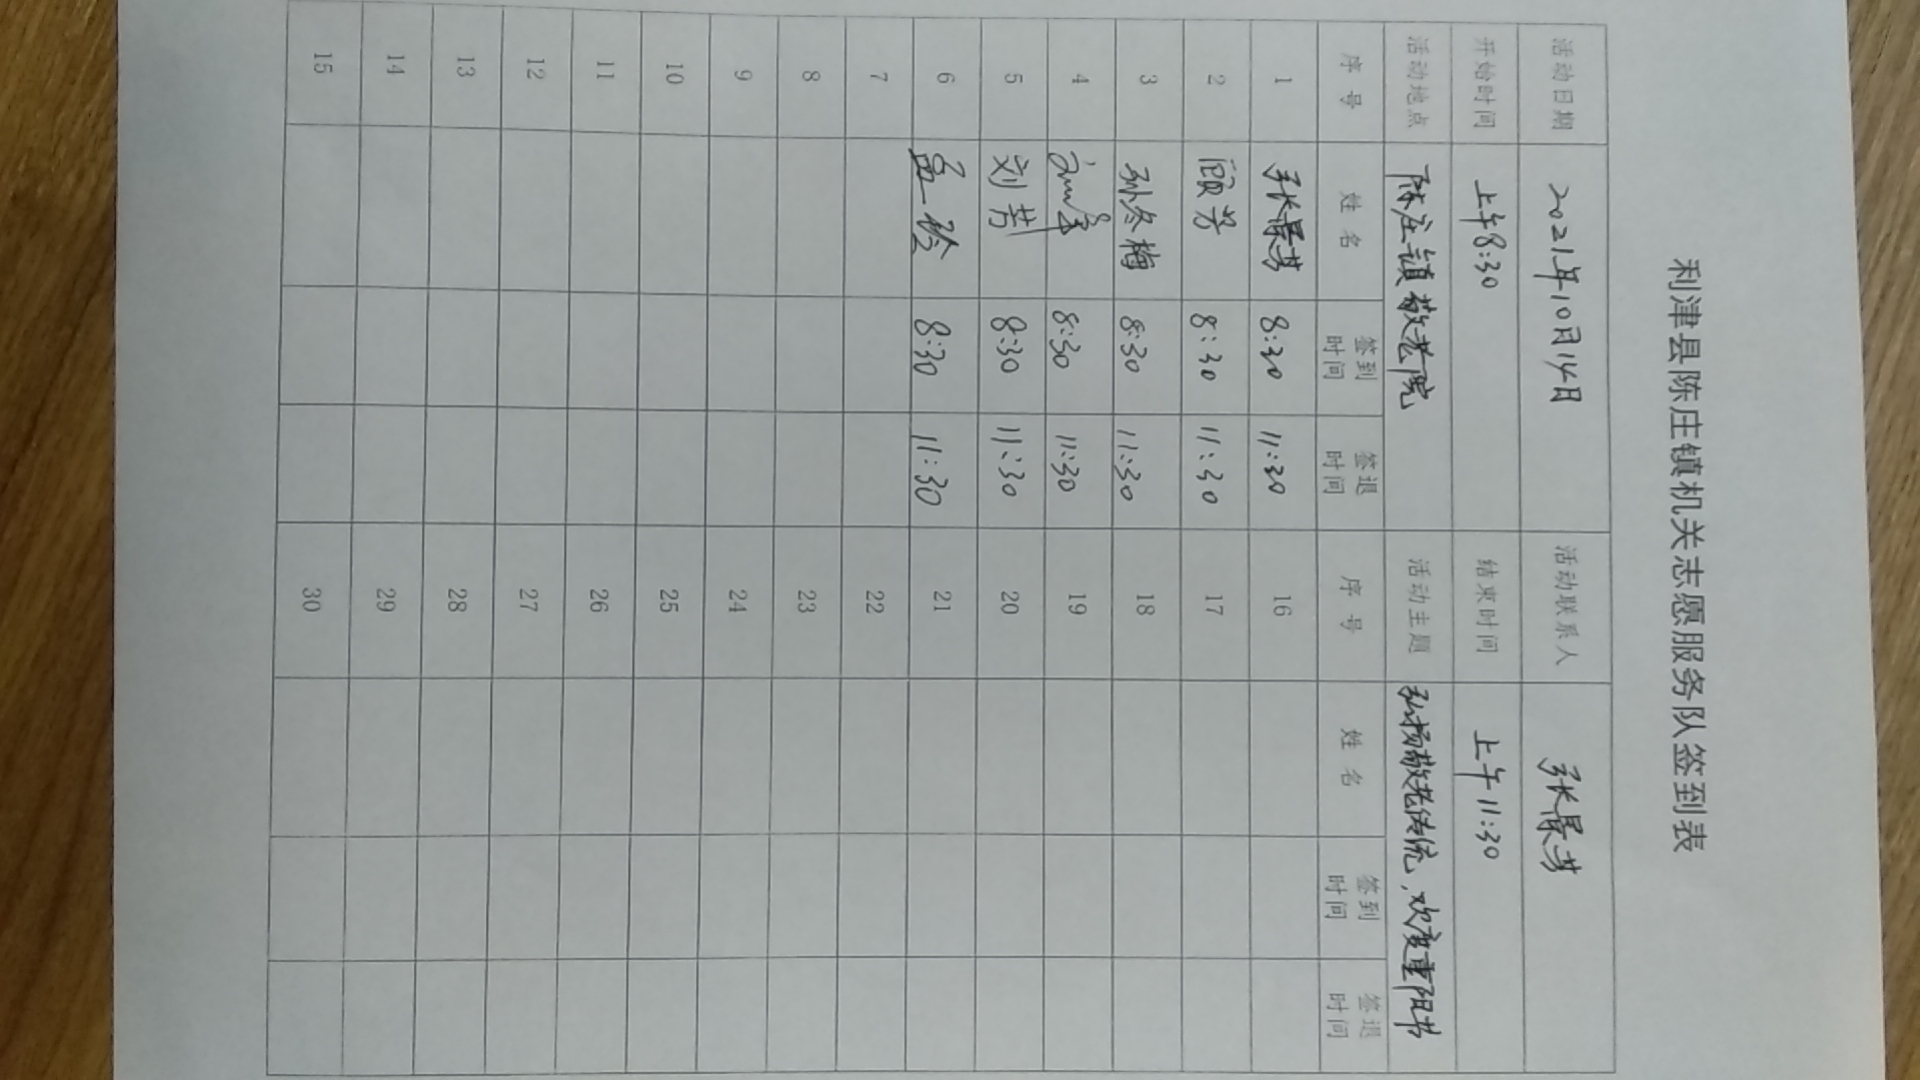 利津县陈庄镇机关志愿服务队签到表
活动日期 2021年10月14日 活动联系人 张景芳
开始时间 上午8:30 结束时间 上午11:30
活动地点 陈庄镇敬老院 活动主题 弘扬敬老传统,欢度重阳节
序号 姓名 签到时间 签退时间 序号 姓名 签到时间 签退时间
1 张景芳 8:30 11:30 16
2 顾芳 8:30 11:30 17
3 孙冬梅 8:30 11:30 18
4 8:30 11:30 19
5 刘芳 8:30 11:30 20
6 孟玲 8:30 11:30 21
7 22
8 23
9 24
10 25
11 26
12 27
13 28
14 29
15 30